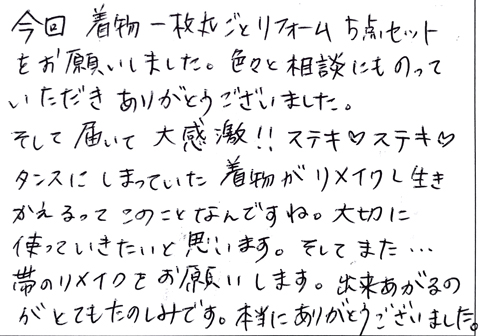 今回 着物一枚丸ごとリフォーム 5点セット
をお願いしました。色々と相談にものって
いただき ありがとうございました。
そして 届いて 大感激!! ステキ♡ステキ♡
タンスに しまっていた 着物が リメイクし生き
かえるって このことなんですね。大切に
使っていきたいと思います。そしてまた…
帯のリメイクをお願いします。出来あがるの
がとてもたのしみです。本当にありがとうございました。